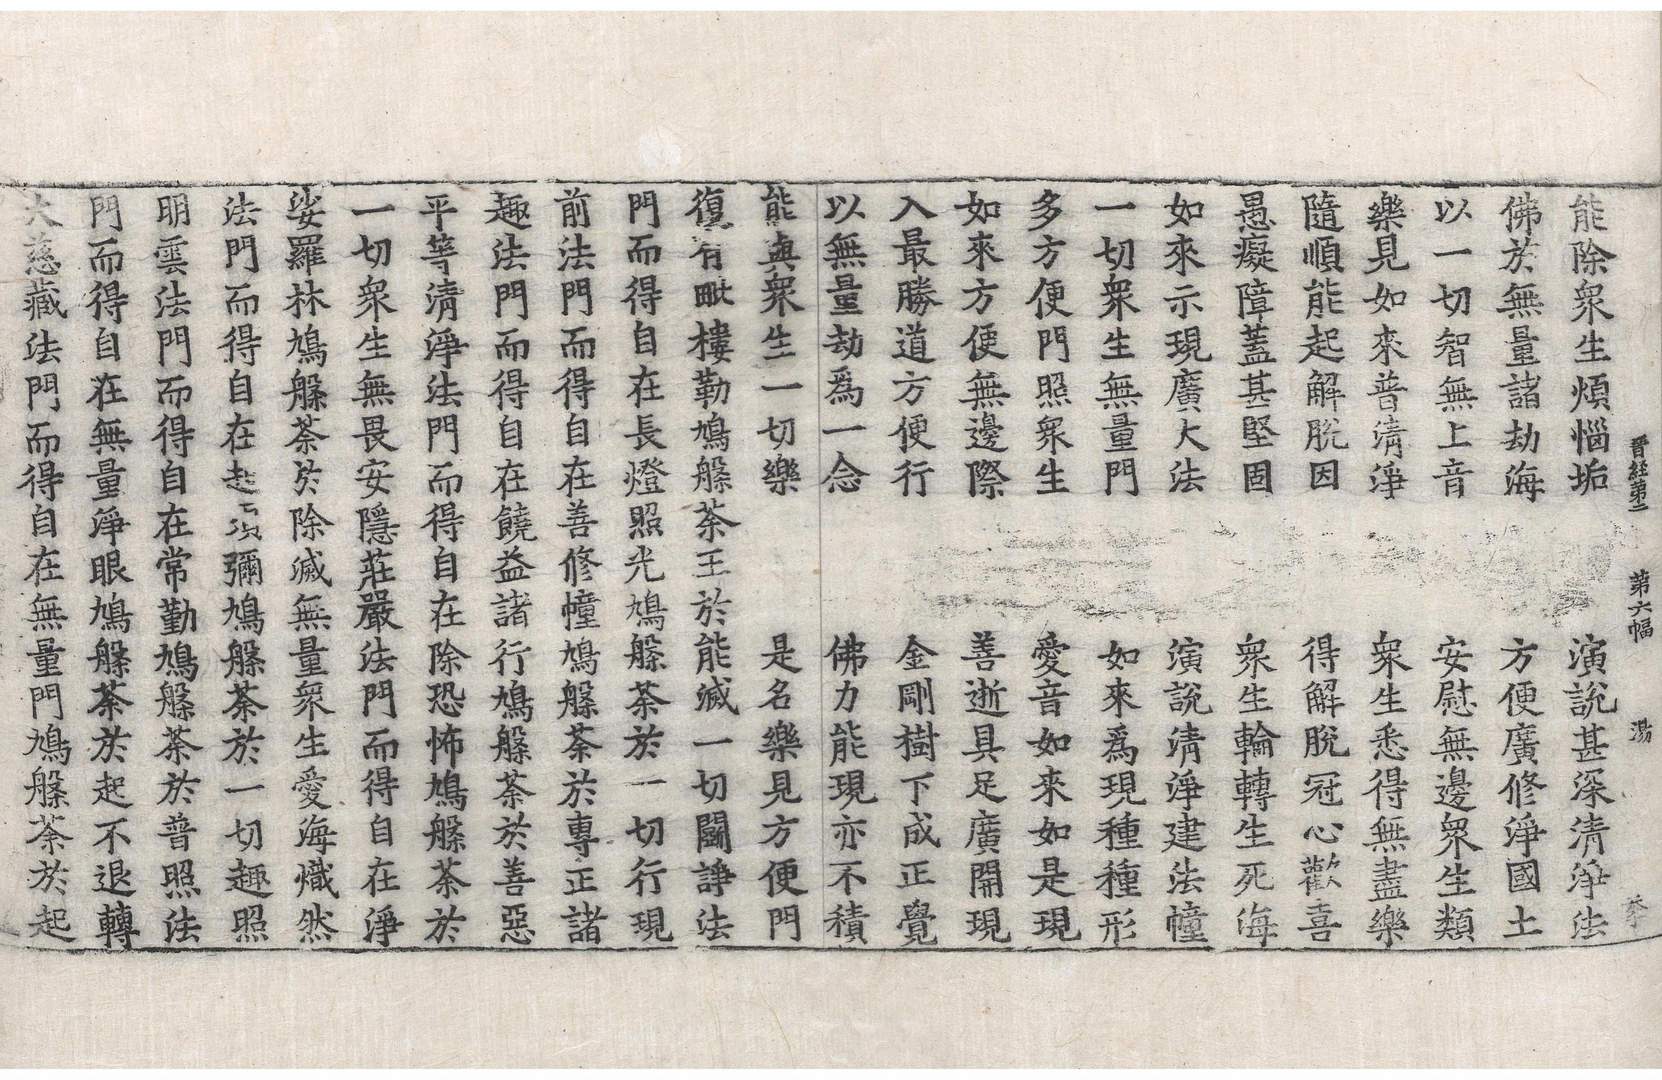 晋経第二 第六幅 湯
能除衆生煩惱垢 演說甚深清淨法
佛於無量諸劫海 方便廣修淨國土
以一切智無上音 安慰無邊衆生類
樂見如來普清淨 衆生悉得無盡樂
隨順能起解脫因 得解脫冠心歡喜
愚癡障蓋甚堅固 衆生輪轉生死海
如來示現廣大法 演說清淨建法幢
一切衆生無量門 如來爲現種種形
多方便門照衆生 愛音如來如是現
如來方便無邊際 善逝具足廣開現
入最勝道方便行 金剛樹下成正覺
以無量劫爲一念 佛力能現亦不積
能與衆生一切樂 是名樂見方便門
復有毗樓勒鳩槃荼王於能滅一切鬪諍法
門而得自在長燈照光鳩槃荼於一切行現
前法門而得自在善修幢鳩槃荼於專正諸
趣法門而得自在饒益諸行鳩槃荼於善惡
平等清淨法門而得自在除恐怖鳩槃荼於
一切衆生無畏安隱莊嚴法門而得自在淨
娑羅林鳩槃荼於除滅無量衆生愛海熾然
法門而得自在起須彌鳩槃荼於一切趣照
明雲法門而得自在常勤鳩槃荼於普照法
門而得自在無量淨眼鳩槃荼於起不退轉
大慈藏法門而得自在無量門鳩槃荼於起